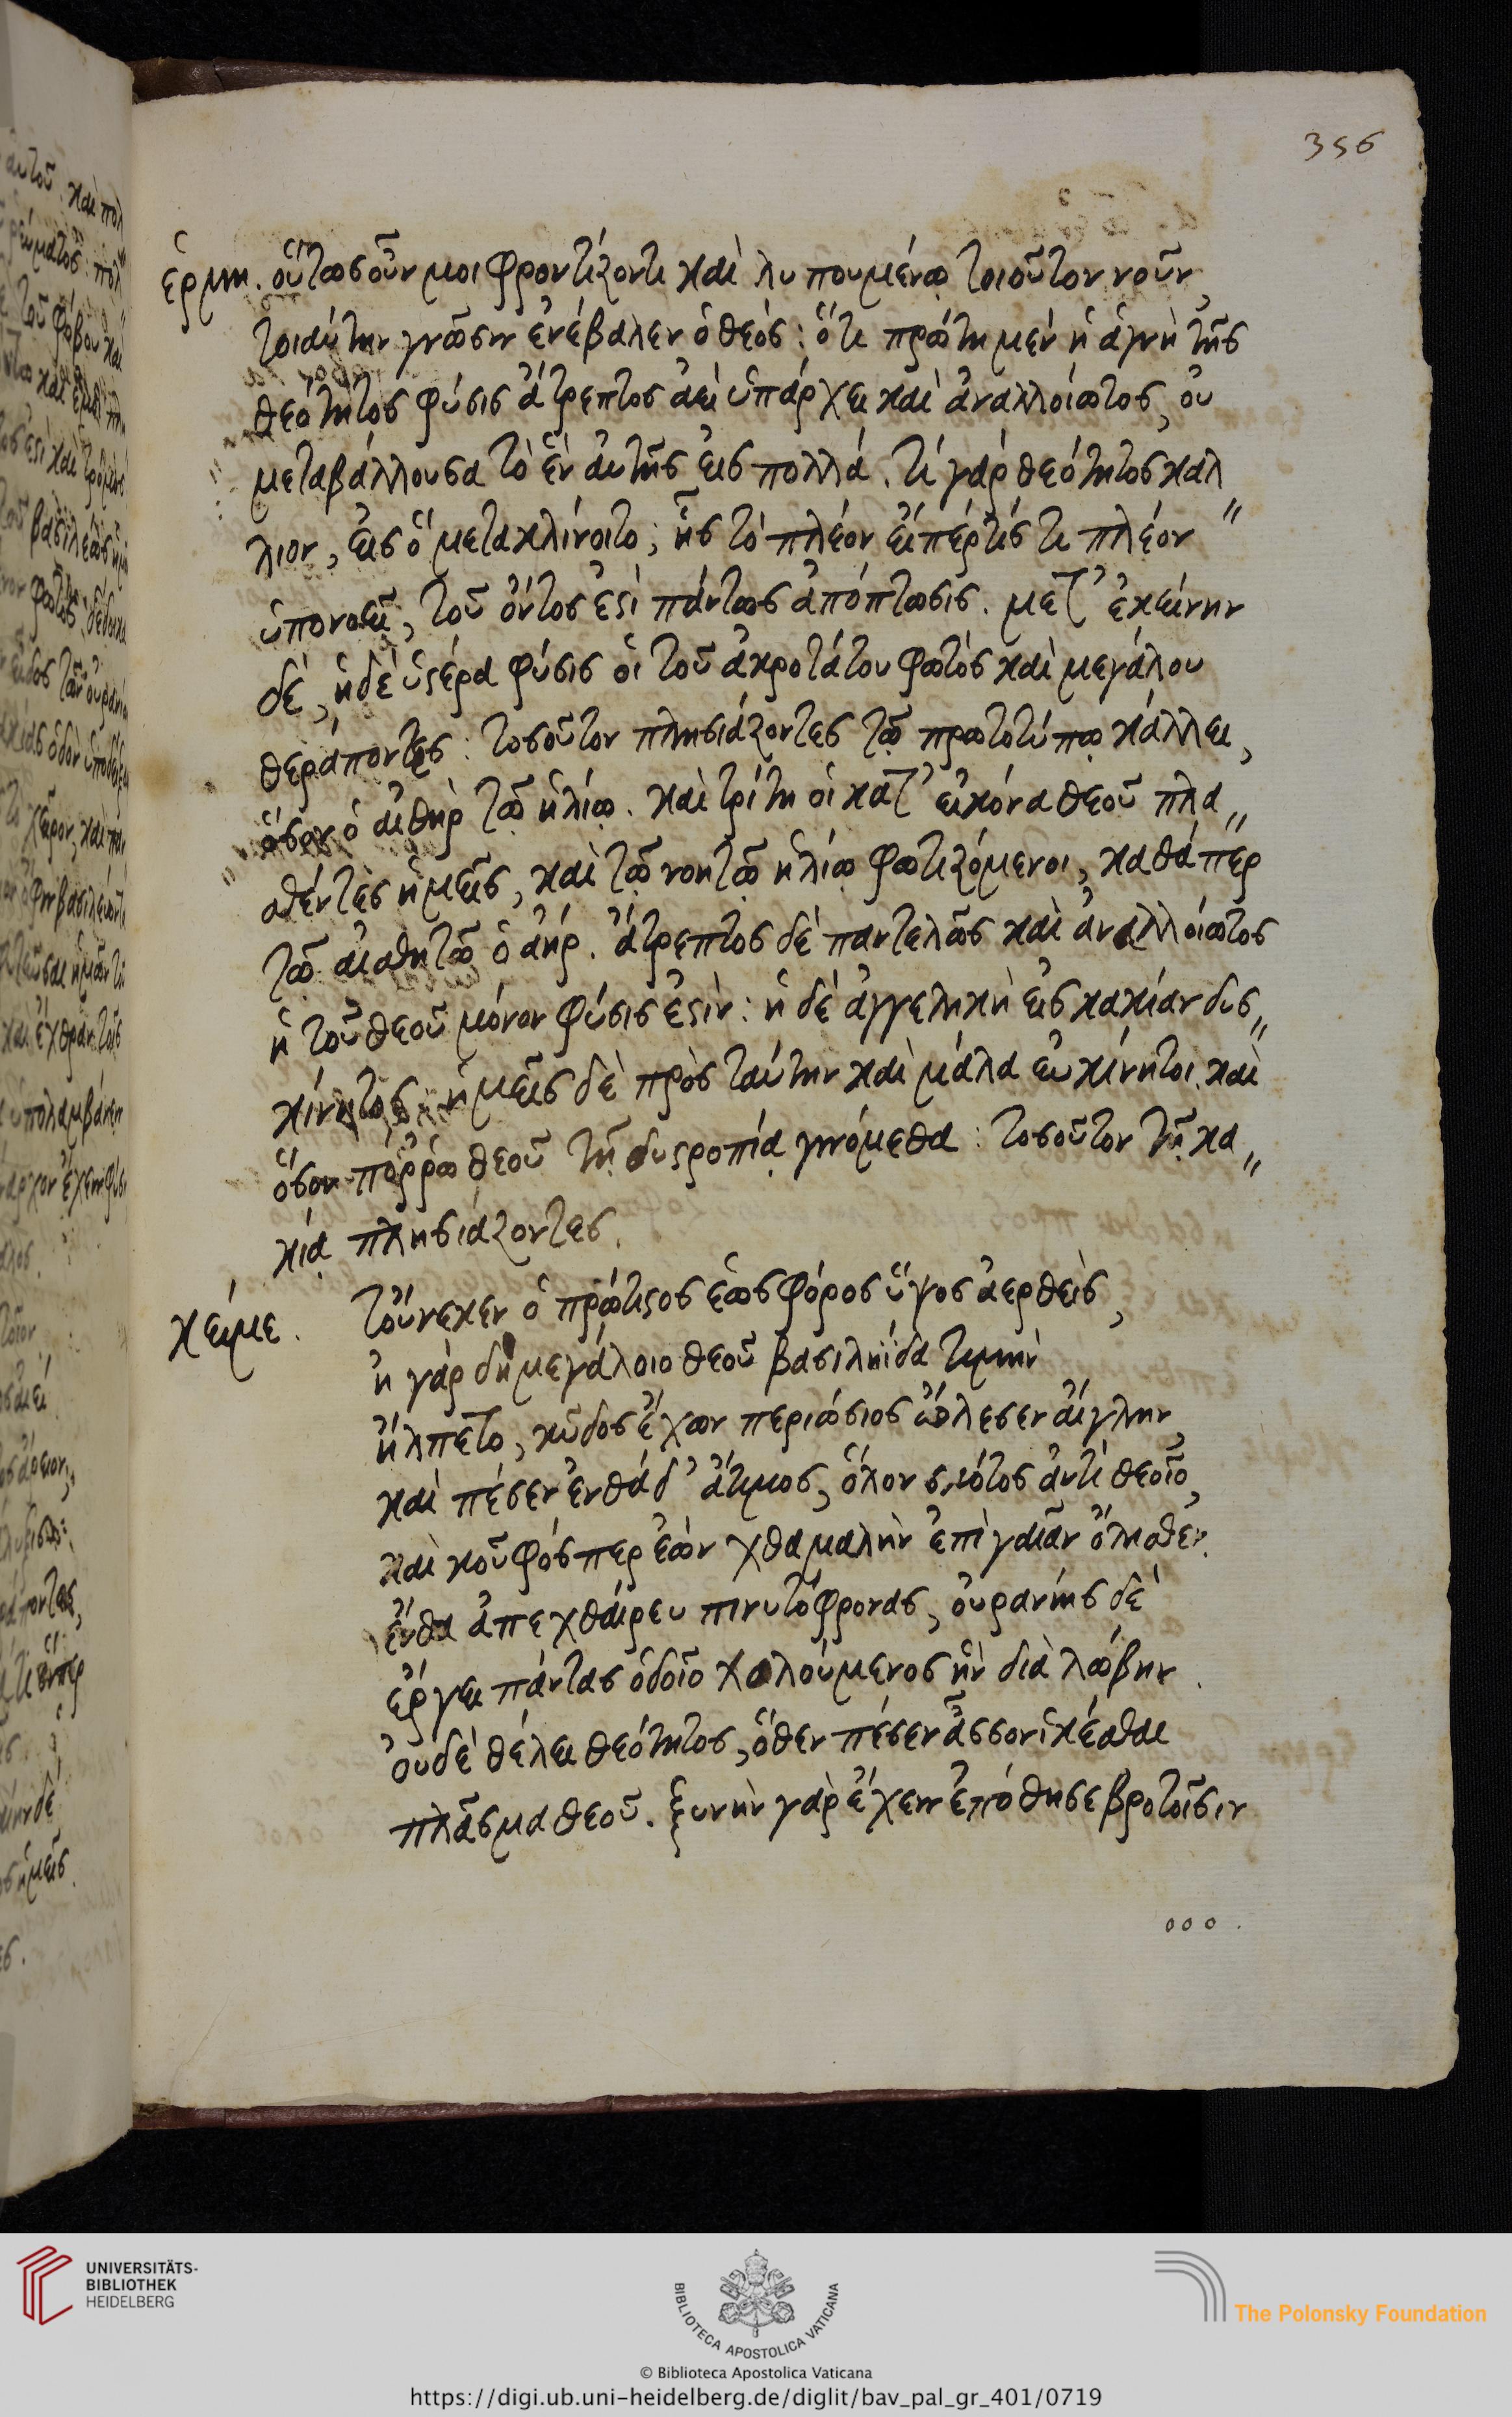 356
ἑρμη. οὕτως οὖν μοι φροντίζοντι καὶ λυπουμένῳ τοιοῦτον νοῦν,
τοιαύτην γνῶσιν ἐνέβαλεν ὁ θεός: ὅτι πρώτη μὲν ἡ ἁγνὴ τῆς
θεότητος φύσις ἄτρεπτος ἀεὶ ὑπάρχει καὶ ἀναλλοίωτος, οὐ
μεταβάλλουσα τὸ ἓν αὐτῆς εἰς πολλά. τί γάρ θεότητος καλ〃
λιον, εἰς ὃ μετακλίνοιτο; ἧς τὸ πλέον εἴπέρ τίς τι πλέον
ὑπονοεῖ, τοῦ ὄντος ἐστὶ πάντως ἀπόπτωσις. μετ' ἐκείνην
δὲ, ἡ δὲ ὑστέρα φύσις οἱ τοῦ ἀκροτάτου φωτὸς καὶ μεγάλου
θεράποντες: τοσοῦτον πλησιάζοντες τῷ πρωτοτύπῳ κάλλει,
ὅσον ὁ αἰθὴρ τῷ ἡλίῳ. καὶ τρίτη οἱ κατ' εἰκόνα θεοῦ πλα〃
σθέντες ἡμεῖς, καὶ τῷ νοητῷ ἡλίῳ φωτιζόμενοι, καθάπερ
τῷ αἰσθητῷ ὁ ἀήρ. ἄτρεπτος δὲ παντελῶς καὶ ἀναλλοίωτος
ἡ τοῦ θεοῦ μόνον φύσις ἐστίν: ἡ δὲ ἀγγελικὴ εἰς κακίαν δυσ〃
κίνητος. ἡμεῖς δὲ πρὸς ταύτην καὶ μάλα εὐκίνητοι. καὶ
ὅσον πόῤῥω θεοῦ τῇ δυστροπίᾳ γινόμεθα: τοσοῦτον τῇ κα〃
κίᾳ πλησιάζοντες.
κείμε. τοὔνεκεν ὁ πρώτιστος ἑωσφόρος ὕψος ἀερθεὶς,
ἦ γὰρ δὴ μεγάλοιο θεοῦ βασιληίδα τιμὴν
ἤλπετο, κῦδος ἔχων περιώσιος ὤλεσεν αἴγλην,
καὶ πέσεν ἐνθάδ' ἄτιμος, ὅλον σκότος ἀντὶ θεοῖο,
καὶ κοῦφός περ ἐὼν χθαμαλὴν ἐπὶ γαῖαν ὄλισθεν.
ἔνθα ἀπεχθαίρει πινυτόφρονας, οὐρανίης δὲ
ἔργει πάντας ὁδοῖο χολούμενος ἣν διὰ λώβην.
οὐδὲ θέλει θεότητος, ὅθεν πέσεν ἆσσον ἱκέσθαι
πλάσμα θεοῦ. ξυνὴν γὰρ ἔχειν ἐπόθησε βροτοῖσιν
UNIVERSITÄTS-
BIBLIOTHEK
HEIDELBERG
BIBLIOTECA APOSTOLICA VATICANA
The Polonsky Foundation
© Biblioteca Apostolica Vaticana
https://digi.ub.uni-heidelberg.de/diglit/bav_pal_gr_401/0719